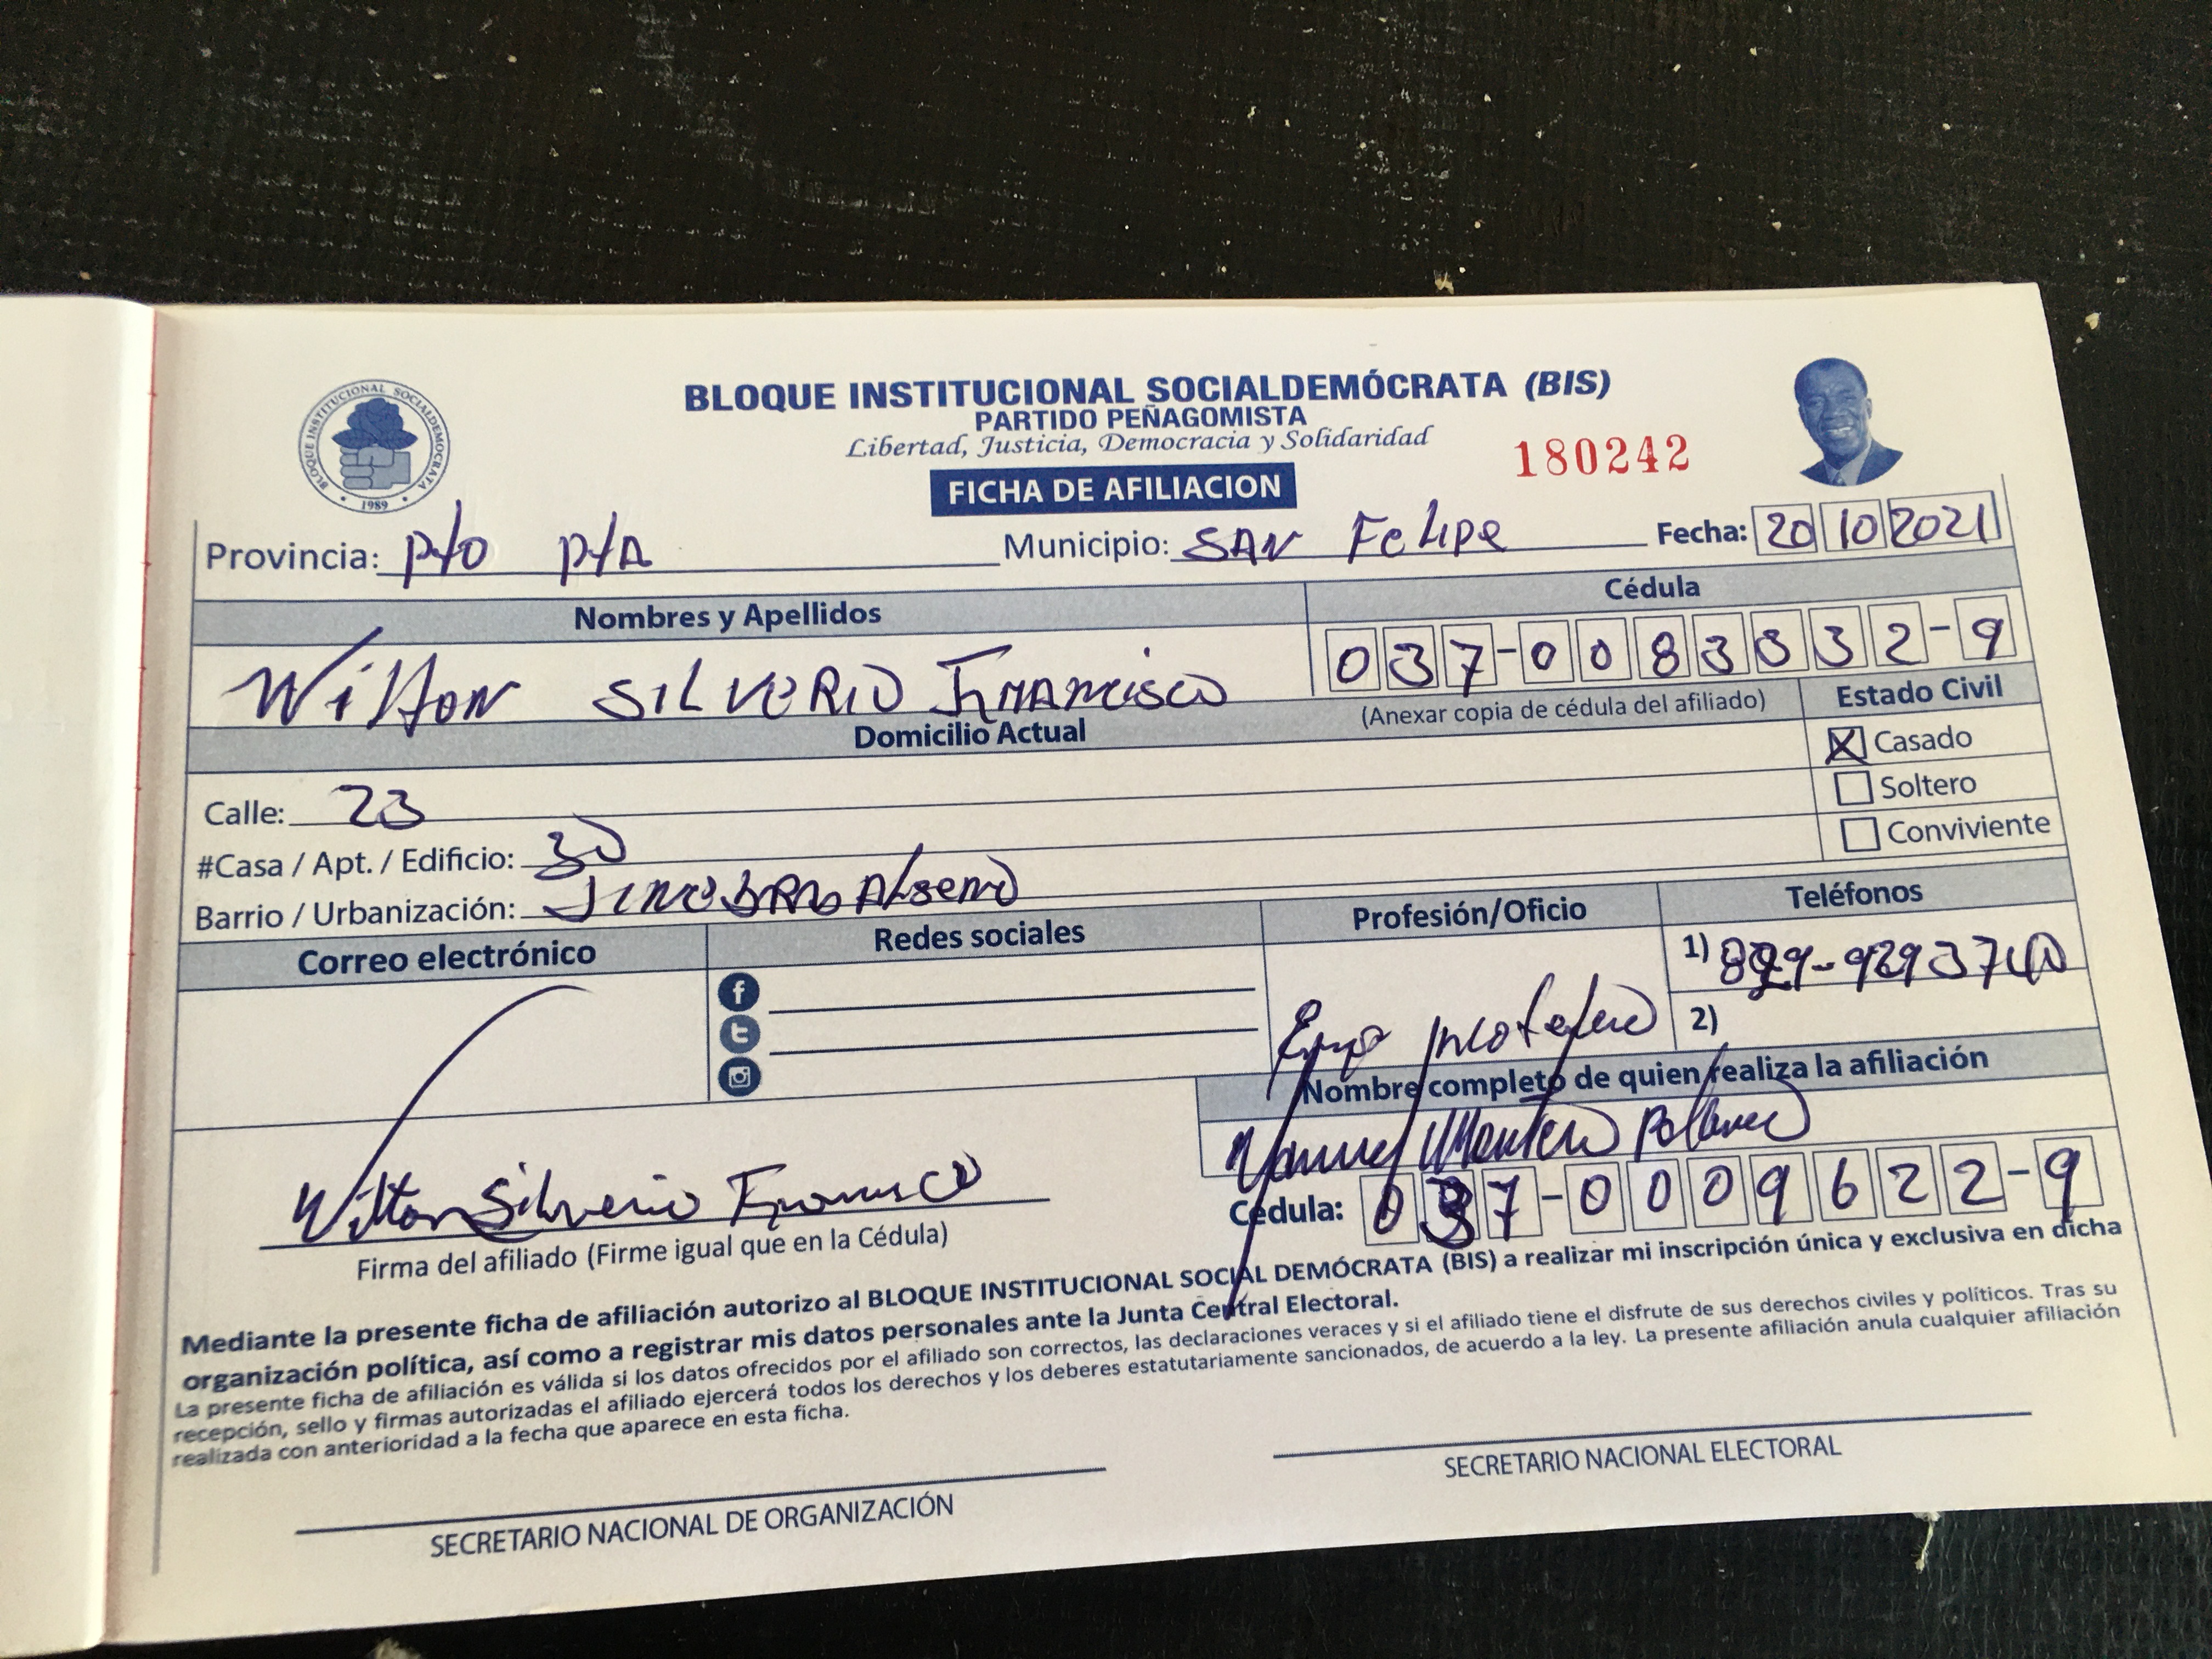 BLOQUE INSTITUCIONAL SOCIALDEMOCRATA
1989
BLOQUE INSTITUCIONAL SOCIALDEMÓCRATA (BIS)
PARTIDO PEÑAGOMISTA
Libertad, Justicia, Democracia y Solidaridad
180242
FICHA DE AFILIACION
Provincia: P/o P/A Municipio: SAN Felipe Fecha: 20 10 2021
Nombres y Apellidos Cédula
Wilton SILVERIO FRANCISCO 037-0083332-9
(Anexar copia de cédula del afiliado) Estado Civil
Domicilio Actual
X Casado
Soltero
Conviviente
Calle: 23
#Casa / Apt. / Edificio: 30
Barrio / Urbanización:
Correo electrónico Redes sociales Profesión/Oficio Teléfonos
1) 829-929
2)
Nombre completo de quien realiza la afiliación
Manuel Montero Polanco
Cédula: 037-0009622-9
Wilton Silverio Francisco
Firma del afiliado (Firme igual que en la Cédula)
Mediante la presente ficha de afiliación autorizo al BLOQUE INSTITUCIONAL SOCIAL DEMÓCRATA (BIS) a realizar mi inscripción única y exclusiva en dicha
organización política, así como a registrar mis datos personales ante la Junta Central Electoral.
La presente ficha de afiliación es válida si los datos ofrecidos por el afiliado son correctos, las declaraciones veraces y si el afiliado tiene el disfrute de sus derechos civiles y políticos. Tras su
recepción, sello y firmas autorizadas el afiliado ejercerá todos los derechos y los deberes estatutariamente sancionados, de acuerdo a la ley. La presente afiliación anula cualquier afiliación
realizada con anterioridad a la fecha que aparece en esta ficha.
SECRETARIO NACIONAL DE ORGANIZACIÓN
SECRETARIO NACIONAL ELECTORAL